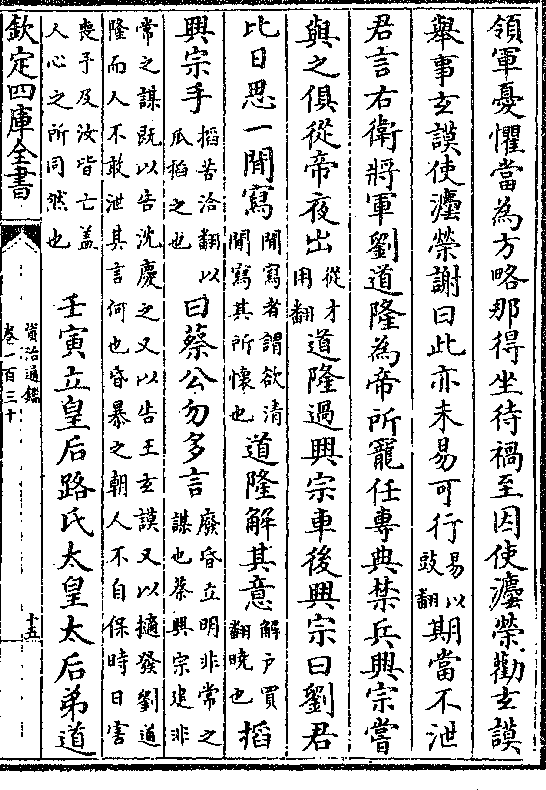 領軍憂懼當為方略那得坐待禍至因使灋榮勸玄謨
舉事玄謨使灋榮謝曰此亦未易可行易以豉翻期當不泄
君言右衛將軍劉道隆為帝所寵任專典禁兵興宗嘗
與之俱從帝夜出從才用翻道隆過興宗車後興宗曰劉君
比日思一閒寫閒寫者謂欲清閒寫其所懷也道隆解其意解户買翻曉也搯
興宗手搯苦洽翻以爪搯之也曰蔡公勿多言廢昏立明非常之謀也蔡興宗進非
常之謀既以告沈慶之又以告王玄謨又以擿發劉道
隆而人不敢泄其言何也昏暴之朝人不自保時日害
喪予及汝皆亡蓋
人心之所同然也
壬寅立皇后路氏太皇太后弟道
欽定四庫全書
資治通鑑
卷一百三十
十五